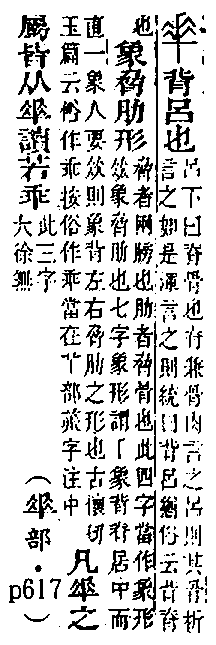 𠦬背呂也
呂下曰脊骨也脊兼骨肉言之呂則其骨析
言之如是渾言之則統曰背呂猶俗云背脊
也
象脅肋形
脅者兩膀也肋者脅骨也此四字當作象形
象脅肋也七字象形謂丨象背脊居中而
直一象人要則象背左右脅肋之形也古懷切
玉篇云俗作乖按俗作乖當在部字注中
凡𠦬之
屬皆从𠦬讀若乖
此三字
大徐無
（𠦬部·p617）